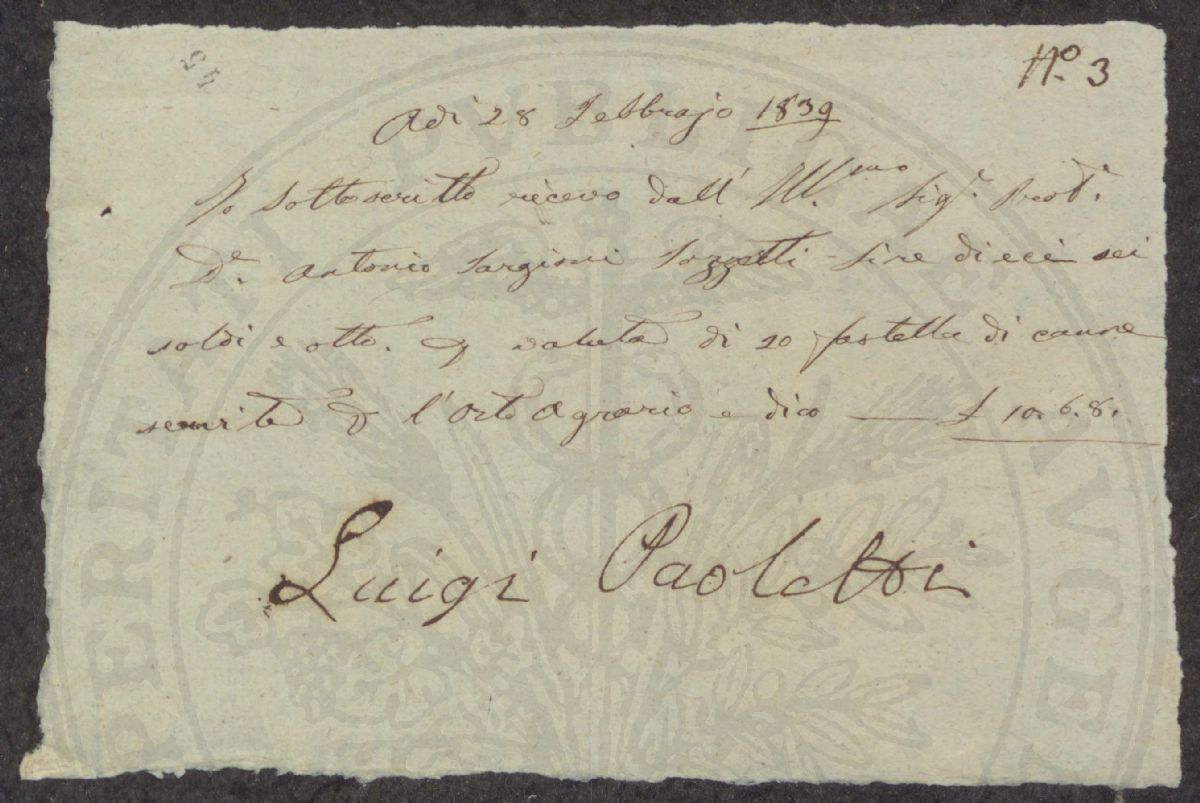 45
N.o 3
Adì 28 Febbrajo 1839
Io Sottoscritto ricevo dall' Ill.mo Sig.r Prof.r
D.r Antonio Targioni Tozzetti Lire dieci sei
soldi e otto. valuta di 20 fastella di canne
servite l'Orto Agrario e dico £ 10.6.8.
Luigi Paoletti
PERITATI PVBLICAE AVGE